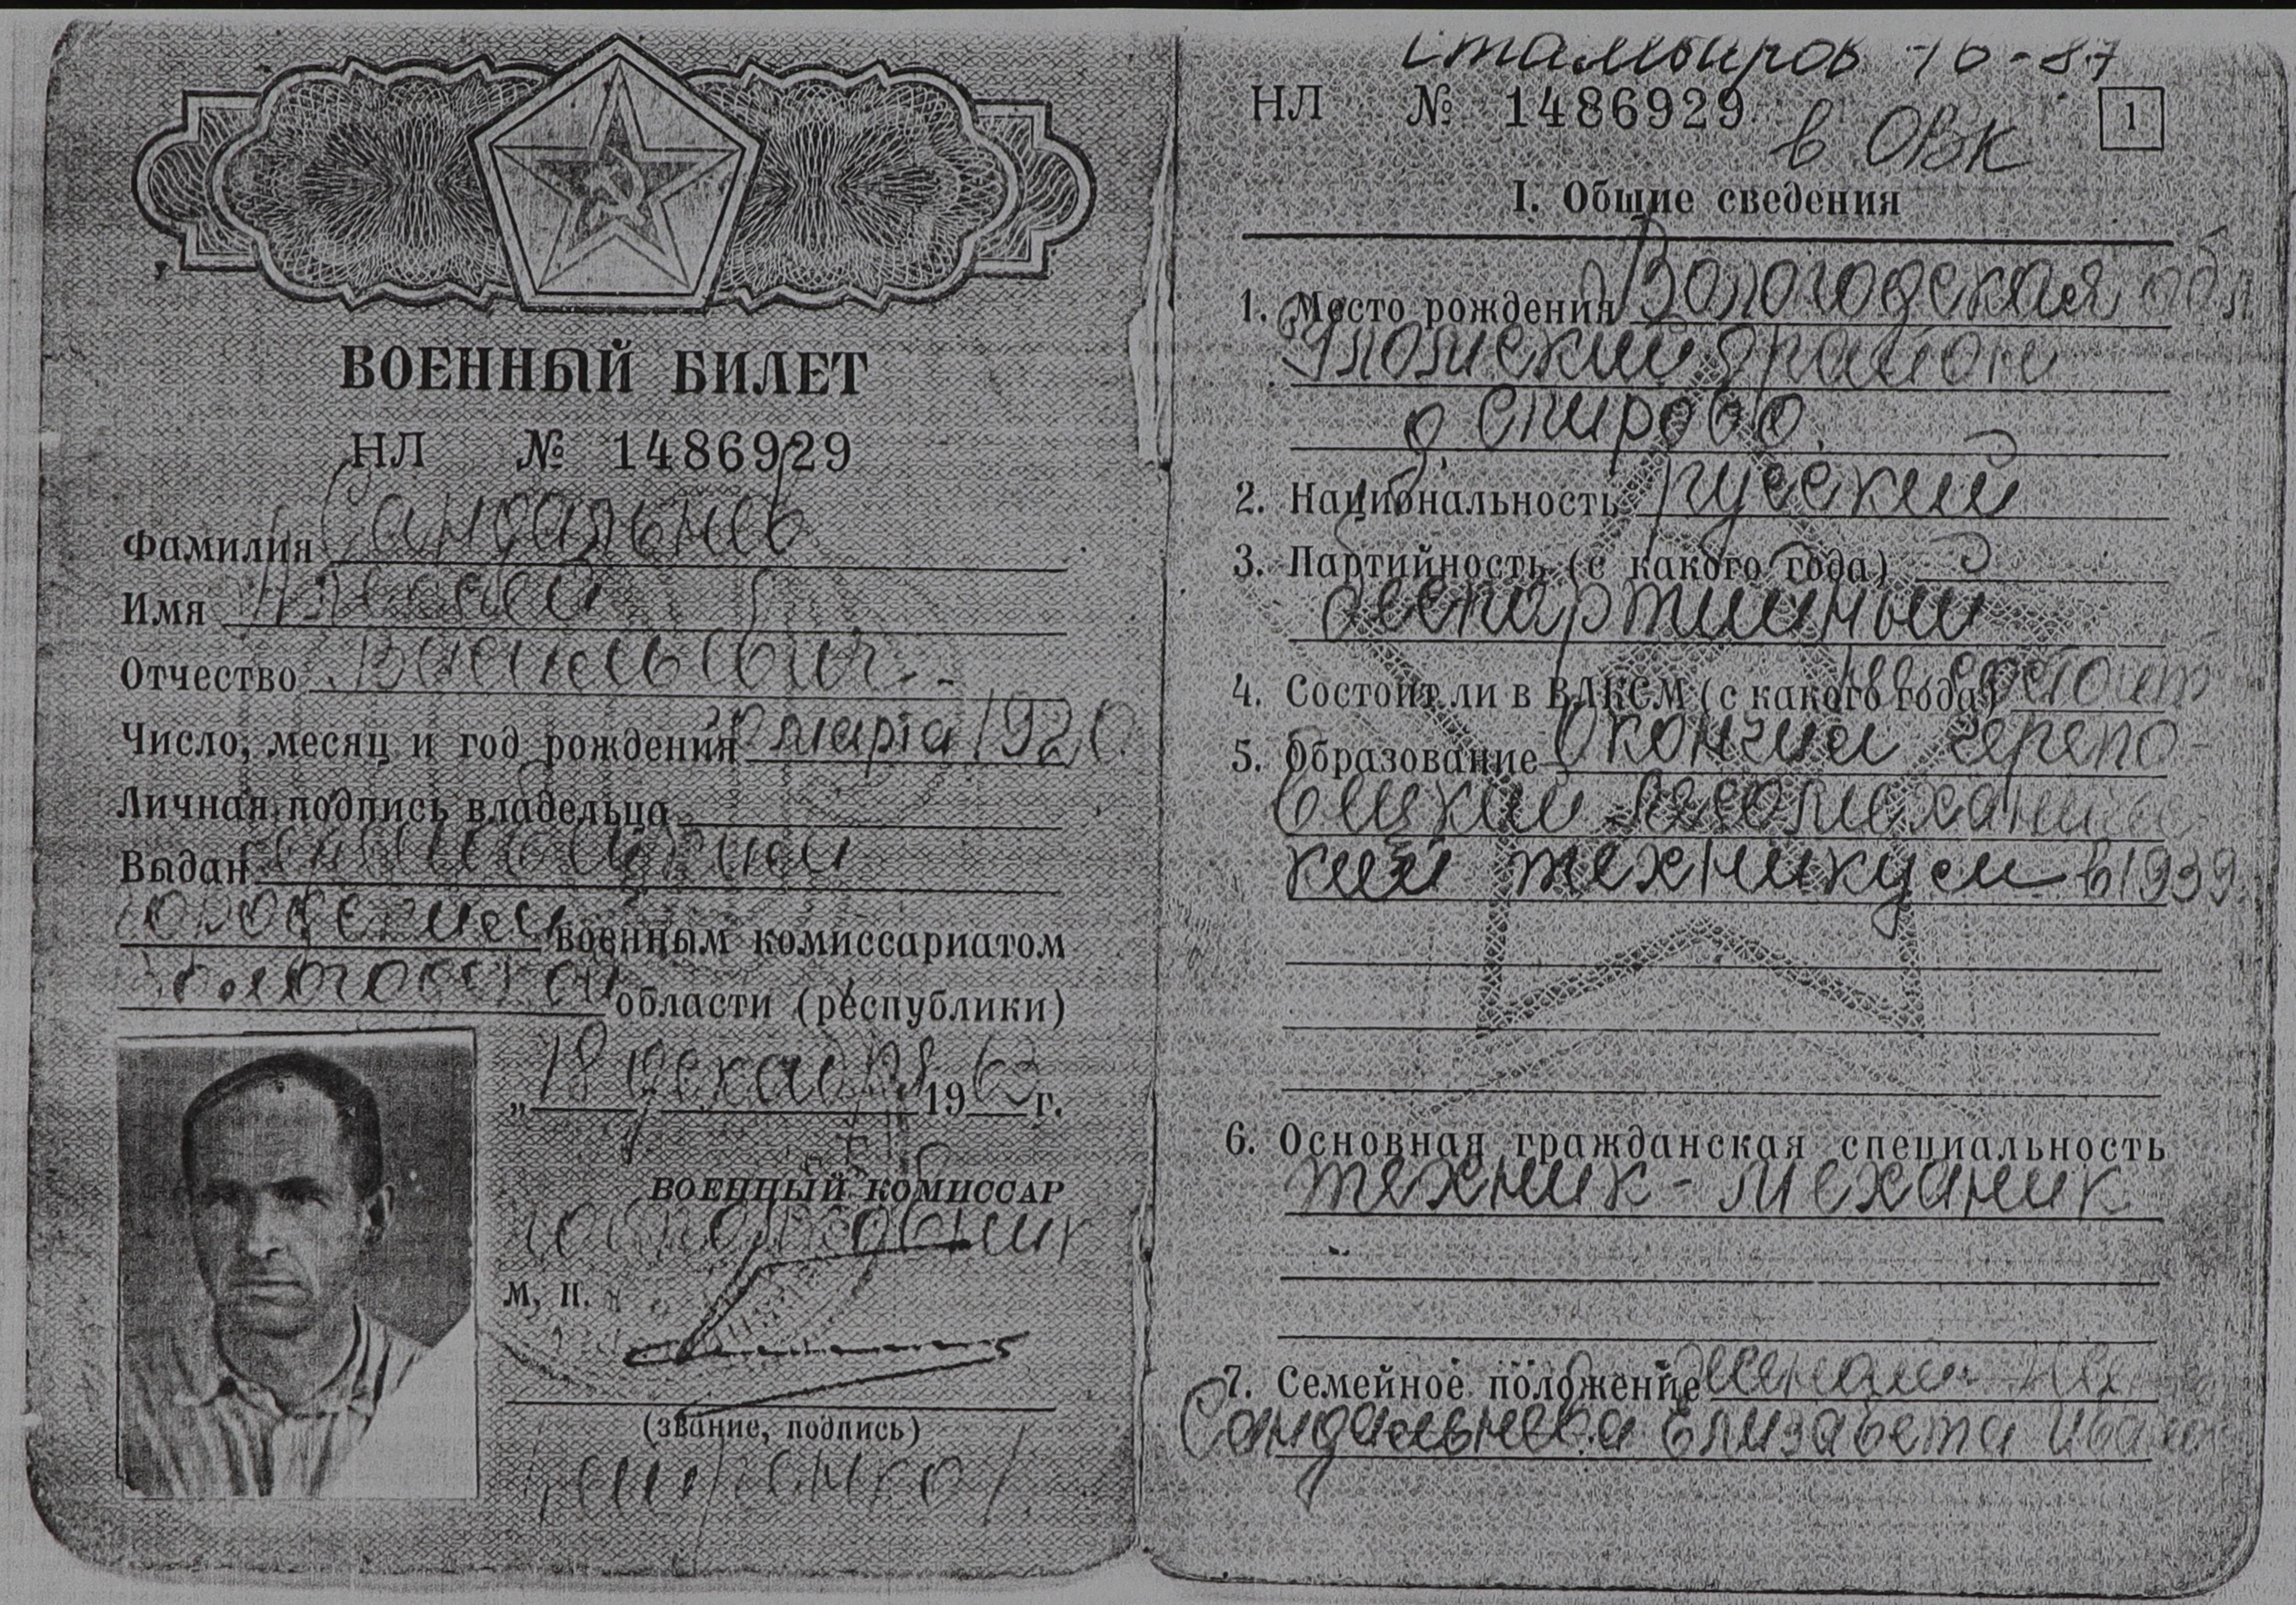 ВОЕННЫЙ БИЛЕТ
НЛ № 1486929
Фамилия Сандальнев
Имя Алексей
Отчество Васильевич
Число, месяц и год рождения марта 1920
Личная подпись владельца
Выдан
городским военным комиссариатом
области (республики)
„18 декабря 1963 г.
ВОЕННЫЙ КОМИССАР
подполковник
М. П.
(звание, подпись)
НЛ № 1486929
в ОВК
1
I. Общие сведения
1. Место рождения Вологодская обл
район
д. Спирово.
2. Национальность русский
3. Партийность (с какого года)
беспартийный
4. Состоит ли в ВЛКСМ (с какого года) не состоит
5. Образование Окончил черепо-
вецкий лесомеханичес
кий техникум в 1939
6. Основная гражданская специальность
техник-механик
7. Семейное положение женат
Сандальнева Елизавета Иван